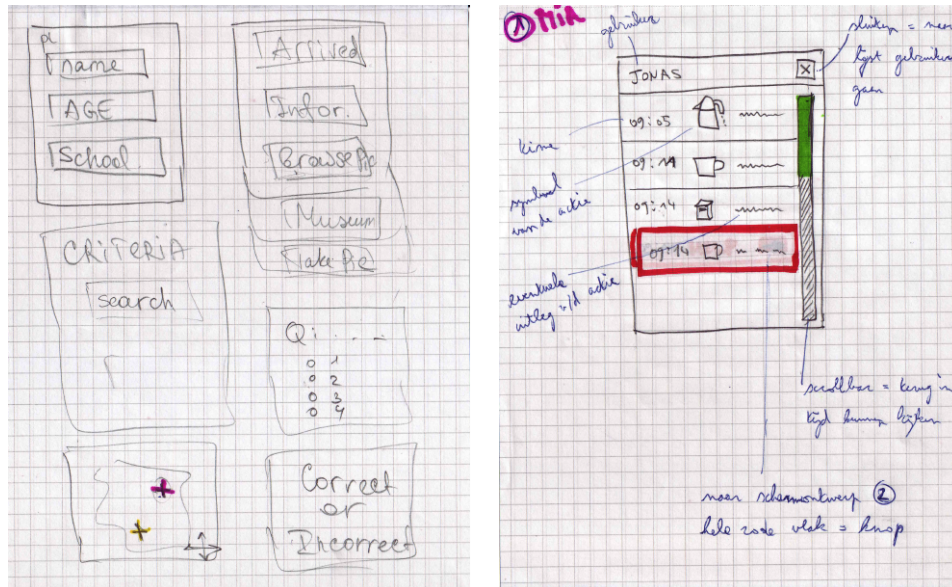 name
AGE
School
Arrived
Infor.
Browse Pic
Museum
Take Pic
CRITERIA
search
Q: . . _
1
2
3
4
Correct
or
Incorrect
1 MIA
gebruiker
sluiten = naar
lijst gebruikers
gaan
JONAS
X
09:05
09:14
09:14
09:14
symbool
van de actie
eventuele
uitleg v/d actie
scrollbar = terug in
tijd kunnen kijken
naar schermontwerp 2
hele rode vlak = knop